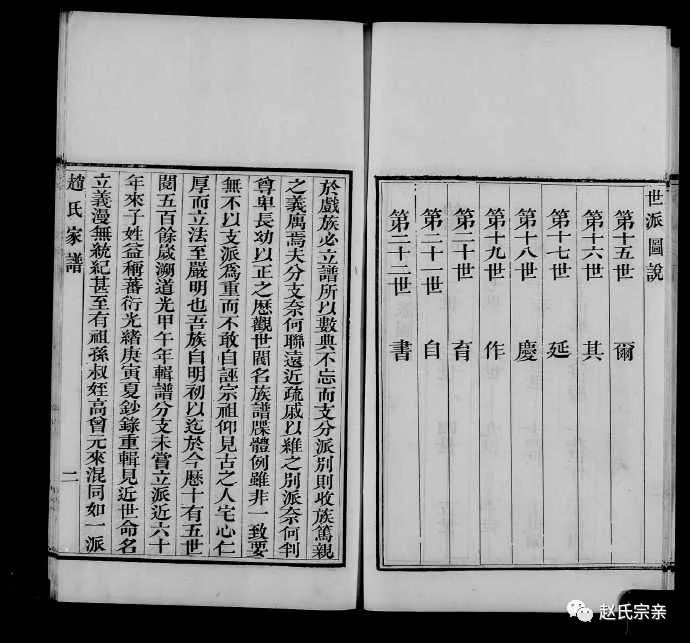 世派圖説
第十五世 爾
第十六世 其
第十七世 延
第十八世 慶
第十九世 作
第二十世 育
第二十一世 自
第二十二世 書
於戲族必立譜所以數典不忘而支分派別則收族篤親
之義寓焉夫分支奈何聯遠近疏戚以維之別派奈何判
尊卑長幼以正之歷觀世閥名族譜牒體例雖非一致要
無不以支派爲重而不敢自誣宗祖仰見古之人宅心仁
厚而立法至嚴明也吾族自明初以迄於今歷十有五世
閱五百餘歲溯道光甲午年輯譜分支未嘗立派近六十
年來子姓益稱蕃衍光緒庚寅夏鈔錄重輯見近世命名
立義漫無統紀甚至有祖孫叔姪高曾元來混同如一派
趙氏家譜 二
赵氏宗亲